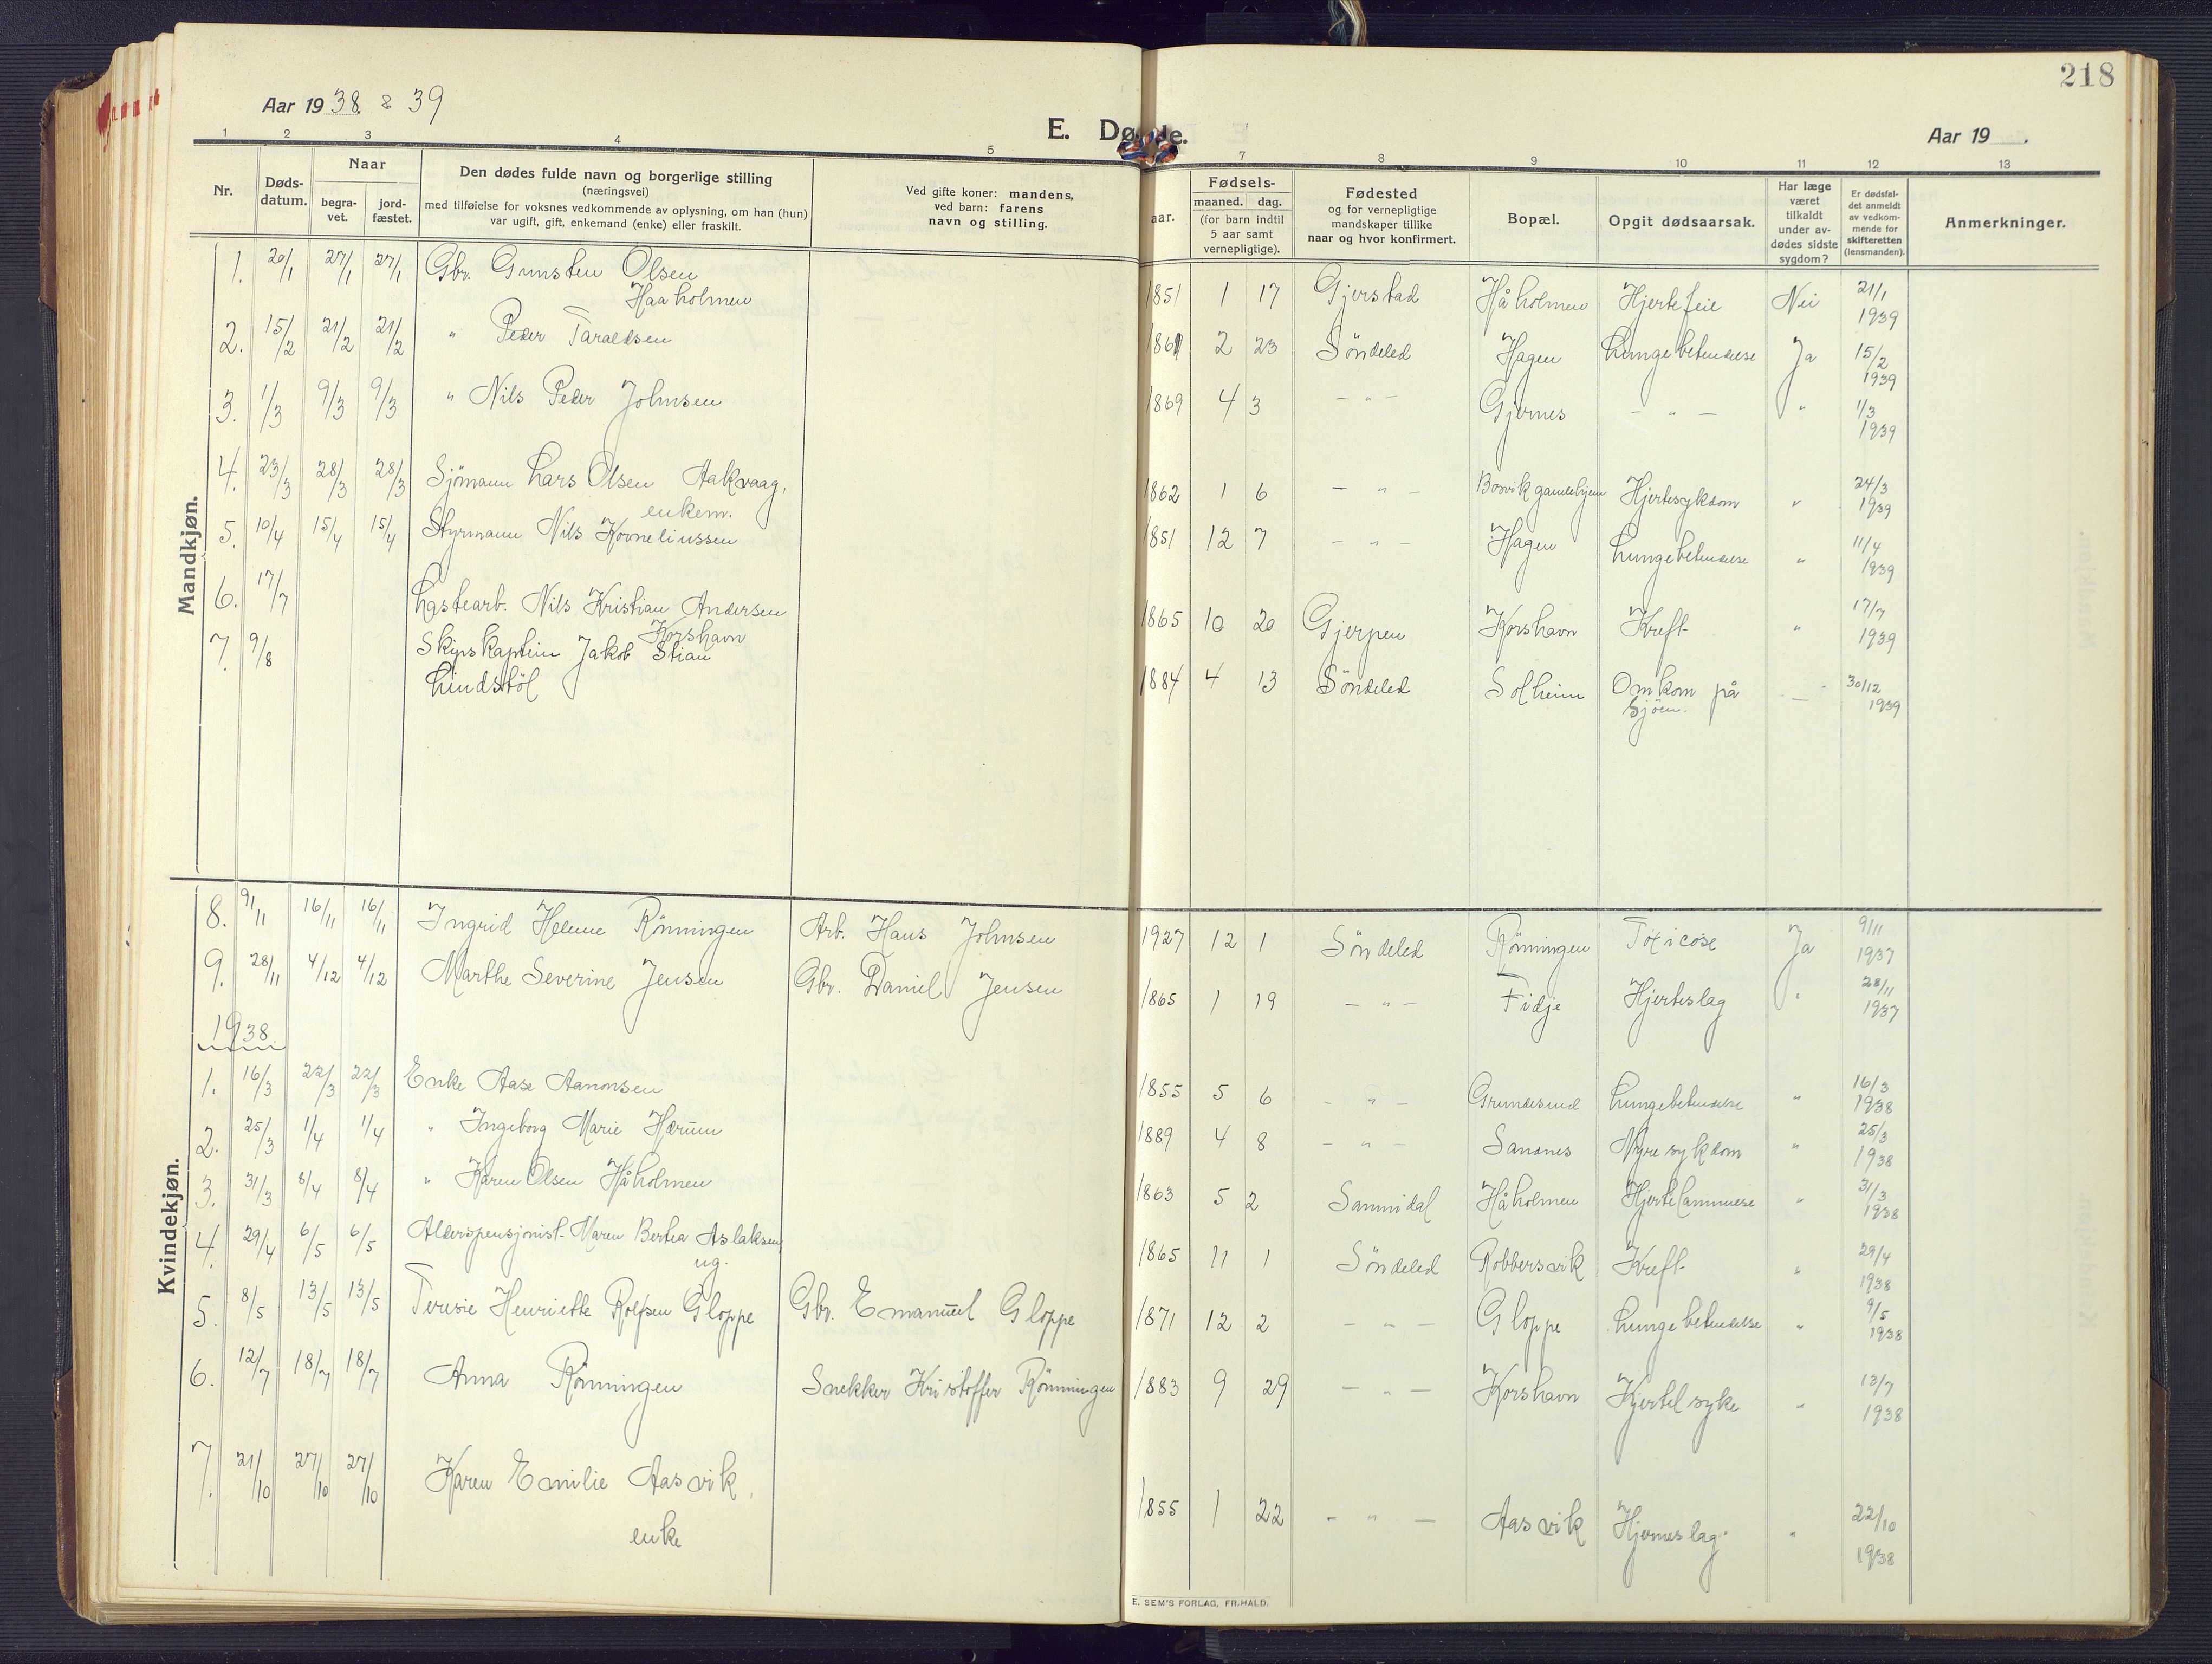 218
Aar 1938. & 39
E. Dø de.
Aar 19 .
1 2 3 4 5 7 8 9 10 11 12 13
Nr.
Døds-datum.
Naar
begra-vet.
jord-fæstet.
Den dødes fulde navn og borgerlige stilling
(næringsvei)
med tilføielse for voksnes vedkommende av oplysning, om han (hun)
var ugift, gift, enkemand (enke) eller fraskilt.
Ved gifte koner: mandens,
ved barn: farens
navn og stilling.
aar.
Fødsels-
maaned. dag.
(for barn indtil
5 aar samt
vernepligtige).
Fødested
og for vernepligtige
mandskaper tillike
naar og hvor konfirmert.
Bopæl.
Opgit dødsaarsak.
Har læge
været
tilkaldt
under av-
dødes sidste
sygdom?
Er dødsfal-
det anmeldt
av vedkom-
mende for
skifteretten
(lensmanden).
Anmerkninger.
Mandkjøn.
1. 20/1 27/1 27/1 Gbr. Gunsten Olsen Haaholmen 1851 1 17 Gjerstad Håholmen Hjertefeie Nei 21/1 1939
2. 15/2 21/2 21/2 " Peder Taraldsen 1861 2 23 Söndeled Hagen Lungebetendelse Ja 15/2 1939
3. 1/3 9/3 9/3 " Nils Peder Johnsen 1869 4 3 — " — Gjernes — " — " 1/3 1939
4. 23/3 28/3 28/3 Sjömann Lars Olsen Aakvaag, enkem. 1862 1 6 — " — Bosvik gamlehjem Hjertesykdom " 24/3 1939
5. 10/4 15/4 15/4 Styrmann Nils Korneliussen 1851 12 7 — " — Hagen Lungebetendelse " 11/4 1939
6. 17/7 Lastearb. Nils Kristian Andersen Korshavn 1865 10 20 Gjerpen Korshavn Kreft " 17/7 1939
7. 9/8 Skipskaptein Jakob Stian Lindstöl 1884 4 13 Söndeled Solheim Omkom på Sjöen. — 30/12 1939
Kvindekjøn.
8. 9/11 16/11 16/11 Ingrid Helene Rönningen Arb. Hans Johnsen 1927 12 1 Söndeled Rönningen Toxicose Ja 9/11 1937
9. 28/11 4/12 4/12 Marthe Severine Jensen Gbr. Daniel Jensen 1865 1 19 — " — Fidje Hjerteslag " 28/11 1937
1938
1. 16/3 22/3 22/3 Enke Aase Aanonsen 1855 5 6 — " — Grundesund Lungebetendelse " 16/3 1938
2. 25/3 1/4 1/4 " Ingeborg Marie Hærum 1889 4 8 — " — Sandnes Nyresykdom " 25/3 1938
3. 31/3 8/4 8/4 " Karen Olsen Håholmen 1863 5 2 Sannidal Håholmen Hjertelammelse " 31/3 1938
4. 29/4 6/5 6/5 Alderspensjonist Maren Bertea Aslaksen ug. 1865 11 1 Söndeled Robbersvik Kreft " 29/4 1938
5. 8/5 13/5 13/5 Teresie Henriette Rolfsen Gloppe Gbr. Emanuel Gloppe 1871 12 2 — " — Gloppe Lungebetendelse " 9/5 1938
6. 12/7 18/7 18/7 Anna Rönningen Snekker Kristoffer Rönningen 1883 9 29 — " — Korshavn Kjertelsyke " 13/7 1938
7. 21/10 27/10 27/10 Karen Emilie Aasvik enke 1855 1 22 — " — Aasvik Hjerneslag " 22/10 1938
E. SEM'S FORLAG, FR.HALD.